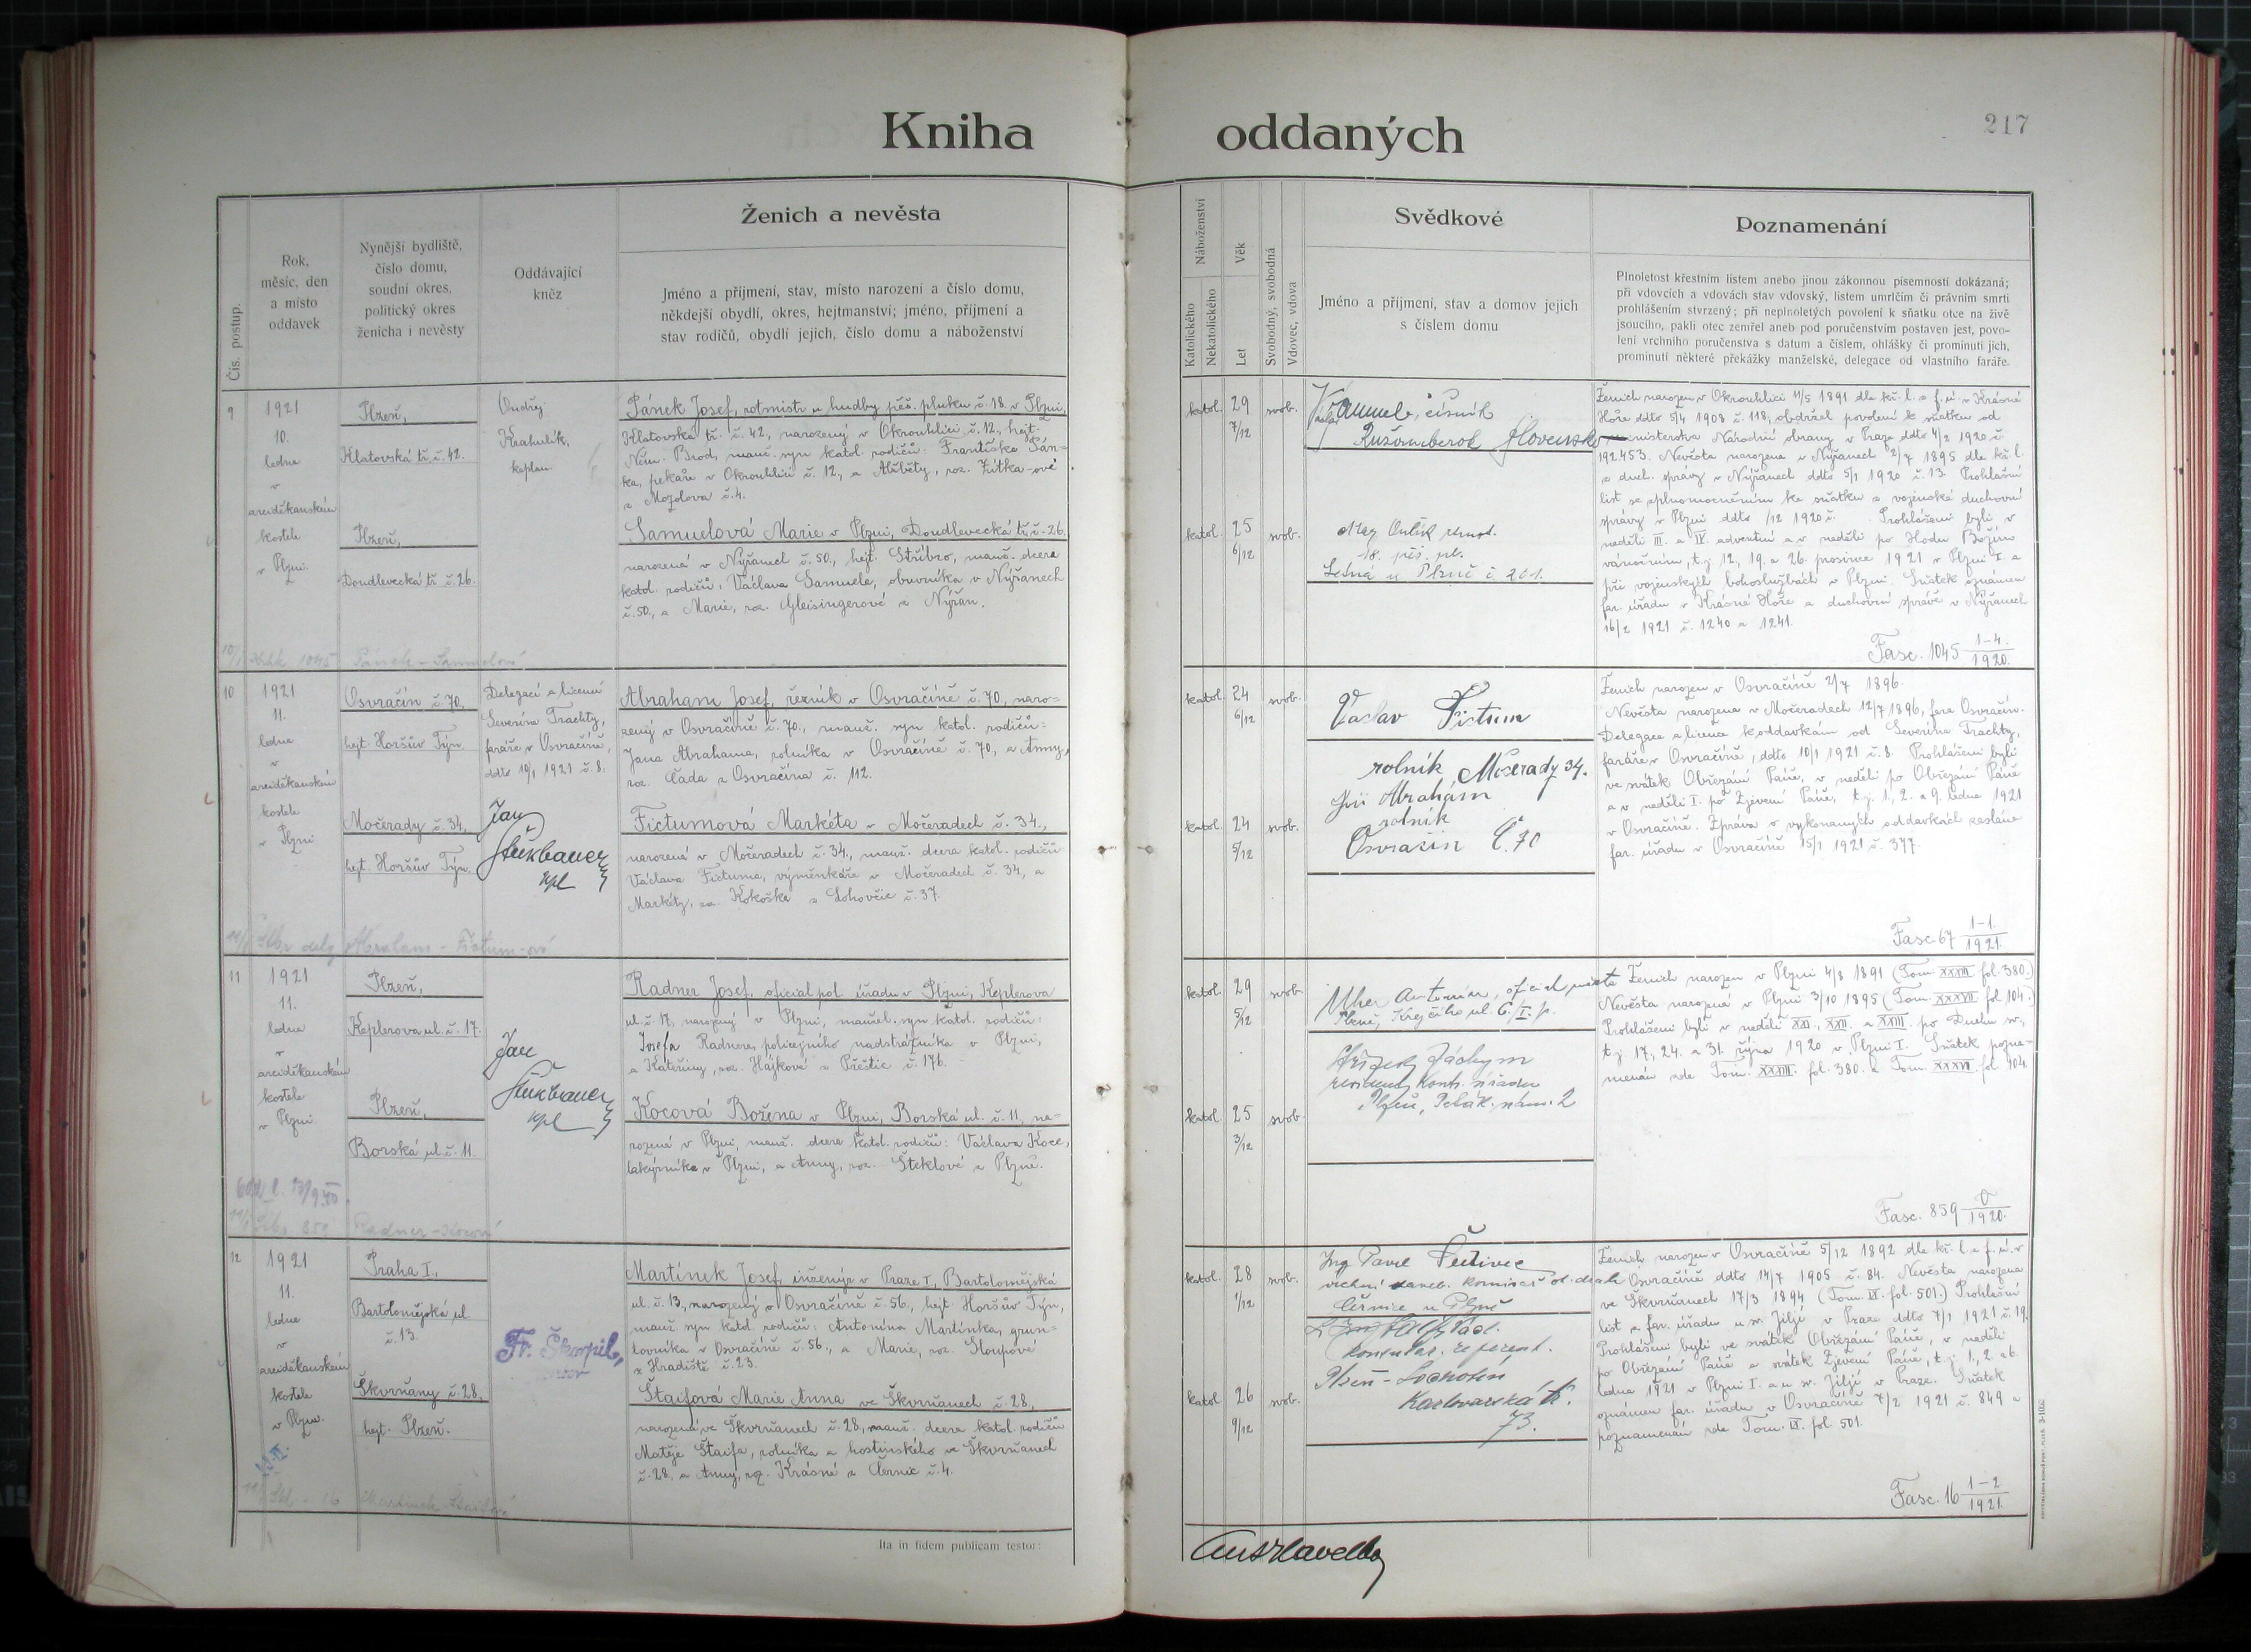 Kniha oddaných
217
Čís. postup.
Rok,
měsíc, den
a místo
oddavek
Nynější bydliště,
číslo domu,
soudní okres,
politický okres
ženicha i nevěsty
Oddávající
kněz
Ženich a nevěsta
Jméno a příjmení, stav, místo narození a číslo domu,
někdejší obydlí, okres, hejtmanství; jméno, příjmení a
stav rodičů, obydlí jejich, číslo domu a náboženství
Náboženství
Katolického
Nekatolického
Věk
Let
Svobodný, svobodná
Vdovec, vdova
Svědkové
Jméno a příjmení, stav a domov jejich
s číslem domu
Poznamenání
Plnoletost křestním listem anebo jinou zákonnou písemností dokázaná;
při vdovcích a vdovách stav vdovský, listem umrlčím či právním smrti
prohlášením stvrzený; při neplnoletých povolení k sňatku otce na živě
jsoucího, pakli otec zemřel aneb pod poručenstvím postaven jest, povo-
lení vrchního poručenstva s datum a číslem, ohlášky či prominutí jich,
prominutí některé překážky manželské, delegace od vlastního faráře.
9
1921
10.
ledna
v
arciděkanském
kostele
v Plzni.
Plzeň,
Klatovská tř. č. 42.
Plzeň,
Doudlevecká tř. č. 26.
Ondřej
kaplan.
Pánek Josef, rotmistr u hudby pěš. pluku č. 18. v Plzni,
Klatovská tř. č. 42., narozený v Okrouhlici č. 12., hejt.
Něm. Brod, manž. syn katol. rodičů: Františka Pán-
ka, pekaře v Okrouhlici č. 12., a Alžběty, roz. Žítka-ové
z Mozolova č. 4.
Samuelová Marie v Plzni, Doudlevecká tř. č. 26.
narozená v Nýřanech č. 50., hejt. Stříbro, manž. dcera
katol. rodičů: Václava Samuela, obuvníka v Nýřanech
č. 50., a Marie, roz. Gleisingerové z Nýřan.
katol. 29 7/12 svob.
katol. 25 6/12 svob.
číšník
Ružomberok Slovensko
18. pěš. pl.
Letná u Plzně č. 201.
Ženich narozen v Okrouhlici 11/5 1891 dle kř. l. z f. ú. v Krásné
Hoře ddto 5/4 1908 č. 118; obdržel povolení k sňatku od
ministerstva Národní obrany v Praze ddto 4/2 1920 č.
192.453. Nevěsta narozena v Nýřanech 2/7 1895 dle kř. l.
z duch. správy v Nýřanech ddto 5/1 1920 č. 13. Prohlašní
list se zplnomocněním ke sňatku z vojenské duchovní
správy v Plzni ddto /12 1920 č. Prohlášeni byli v
neděli III. a IV. adventní a v neděli po Hodu Božím
vánočním, t. j. 12., 19. a 26. prosince 1921 v Plzni I. a
při vojenských bohoslužbách v Plzni. Sňatek oznámen
far. úřadu v Krásné Hoře a duchovní správě v Nýřanech
16/2 1921 č. 1240 a 1241.
Fasc. 1045 1-4./1920.
Pánek - Samuelová
10
1921
11.
ledna
v
arciděkanském
kostele
v Plzni
Osvračín č. 70,
hejt. Horšův Týn.
Močerady č. 34,
hejt. Horšův Týn.
Delegací a licencí
Severina Trachty,
faráře v Osvračíně,
ddto 10/1 1921 č. 8.
Jan
kpl
Abraham Josef, řezník v Osvračíně č. 70., naro-
zený v Osvračíně č. 70., manž. syn katol. rodičů:
Jana Abrahama, rolníka v Osvračíně č. 70, a Anny,
roz. Čada z Osvračína č. 112.
Fictumová Markéta v Močeradech č. 34.,
narozená v Močeradech č. 34., manž. dcera katol. rodičů
Václava Fictuma, výměnkáře v Močeradech č. 34, a
Markéty, roz. Kokoška z Lohovčic č. 37.
katol. 24 6/12 svob.
katol. 24 5/12 svob.
Vaclav Fictum
rolník, Močerady 34.
Jiří Abrahám
rolník
Osvračin Č. 70
Ženich narozen v Osvračíně 2/7 1896.
Nevěsta narozena v Močeradech 12/7 1896, fara Osvračín.
Delegace a licence k oddavkám od Severina Trachty,
faráře v Osvračíně, ddto 10/1 1921 č. 8. Prohlášeni byli
ve svátek Obřezání Páně, v neděli po Obřezání Páně
a v neděli I. po Zjevení Páně, t. j. 1., 2. a 9. ledna 1921
v Osvračíně. Zpráva o vykonaných oddavkách zaslána
far. úřadu v Osvračíně 15/1 1921 č. 377.
Fasc. 67 1-1./1921.
Abraham - Fictum-ová
11
1921
11.
ledna
v
arciděkanském
kostele
v Plzni
Plzeň,
Keplerova ul. č. 17.
Plzeň,
Borská ul. č. 11.
Jan
kpl
Radner Josef, oficiál pol. úřadu v Plzni, Keplerova
ul. č. 17, narozený v Plzni, manžel. syn katol. rodičů:
Josefa Radnera, policejního nadstrážníka v Plzni,
a Kateřiny, roz. Hájkové z Přeštic č. 176.
Kocová Božena v Plzni, Borská ul. č. 11., na-
rozená v Plzni, manž. dcera katol. rodičů: Václava Koce,
lakýrníka v Plzni, a Anny, roz. Šteklové z Plzně.
katol. 29 5/12 svob.
katol. 25 3/12 svob.
Uher Antonín, oficiál
Jáchym
Plzeň, Peták. nám. 2
Ženich narozen v Plzni 4/8 1891 (Tom. XXXIII. fol. 380.)
Nevěsta narozená v Plzni 3/10 1895 (Tom. XXXVII. fol. 104.)
Prohlášeni byli v neděli XXI., XXII. a XXIII. po Duchu sv.,
t. j. 17., 24. a 31. října 1920 v Plzni I. Sňatek pozna-
menán zde Tom. XXXIII. fol. 380. a Tom. XXXVII. fol. 104.
Fasc. 859 /1920.
Radner - Kocová
12
1921
11.
ledna
v
arciděkanském
kostele
v Plzni.
Praha I.,
Bartolomějská ul.
č. 13.
Škvrňany č. 28,
hejt. Plzeň.
Fr. Škorpil,
Martínek Josef, inženýr v Praze I., Bartolomějská
ul. č. 13., narozený v Osvračíně č. 56., hejt. Horšův Týn,
manž. syn katol. rodičů: Antonína Martínka, grun-
tovníka v Osvračíně č. 56., a Marie, roz. Sloupové
z Hradiště č. 23.
Štaifová Marie Anna ve Škvrňanech č. 28,
narozená ve Škvrňanech č. 28, manž. dcera katol. rodičů
Matěje Štaifa, rolníka a hostinského ve Škvrňanech
č. 28., a Anny, roz. Krásné z Černic č. 4.
katol. 28 1/12 svob.
katol. 26 9/12 svob.
Ing Pavel
Černice u Plzně
Plzeň - Lochotín
Karlovarská tř.
73.
Ženich narozen v Osvračíně 5/12 1892 dle kř. l. z f. ú. v
Osvračíně ddto 14/7 1905 č. 84. Nevěsta narozena
ve Škvrňanech 17/3 1894 (Tom. IX. fol. 501.) Prohlašní
list z far. úřadu u sv. Jiljí v Praze ddto 7/1 1921 č. 19.
Prohlášeni byli ve svátek Obřezání Páně, v neděli
po Obřezání Páně a svátek Zjevení Páně, t. j. 1., 2. a 6.
ledna 1921 v Plzni I. a u sv. Jiljí v Praze. Sňatek
oznámen far. úřadu v Osvračíně 7/2 1921 č. 849 a
poznamenán zde Tom. IX. fol. 501.
Fasc. 16 1-2/1921.
Ita in fidem publicam testor: